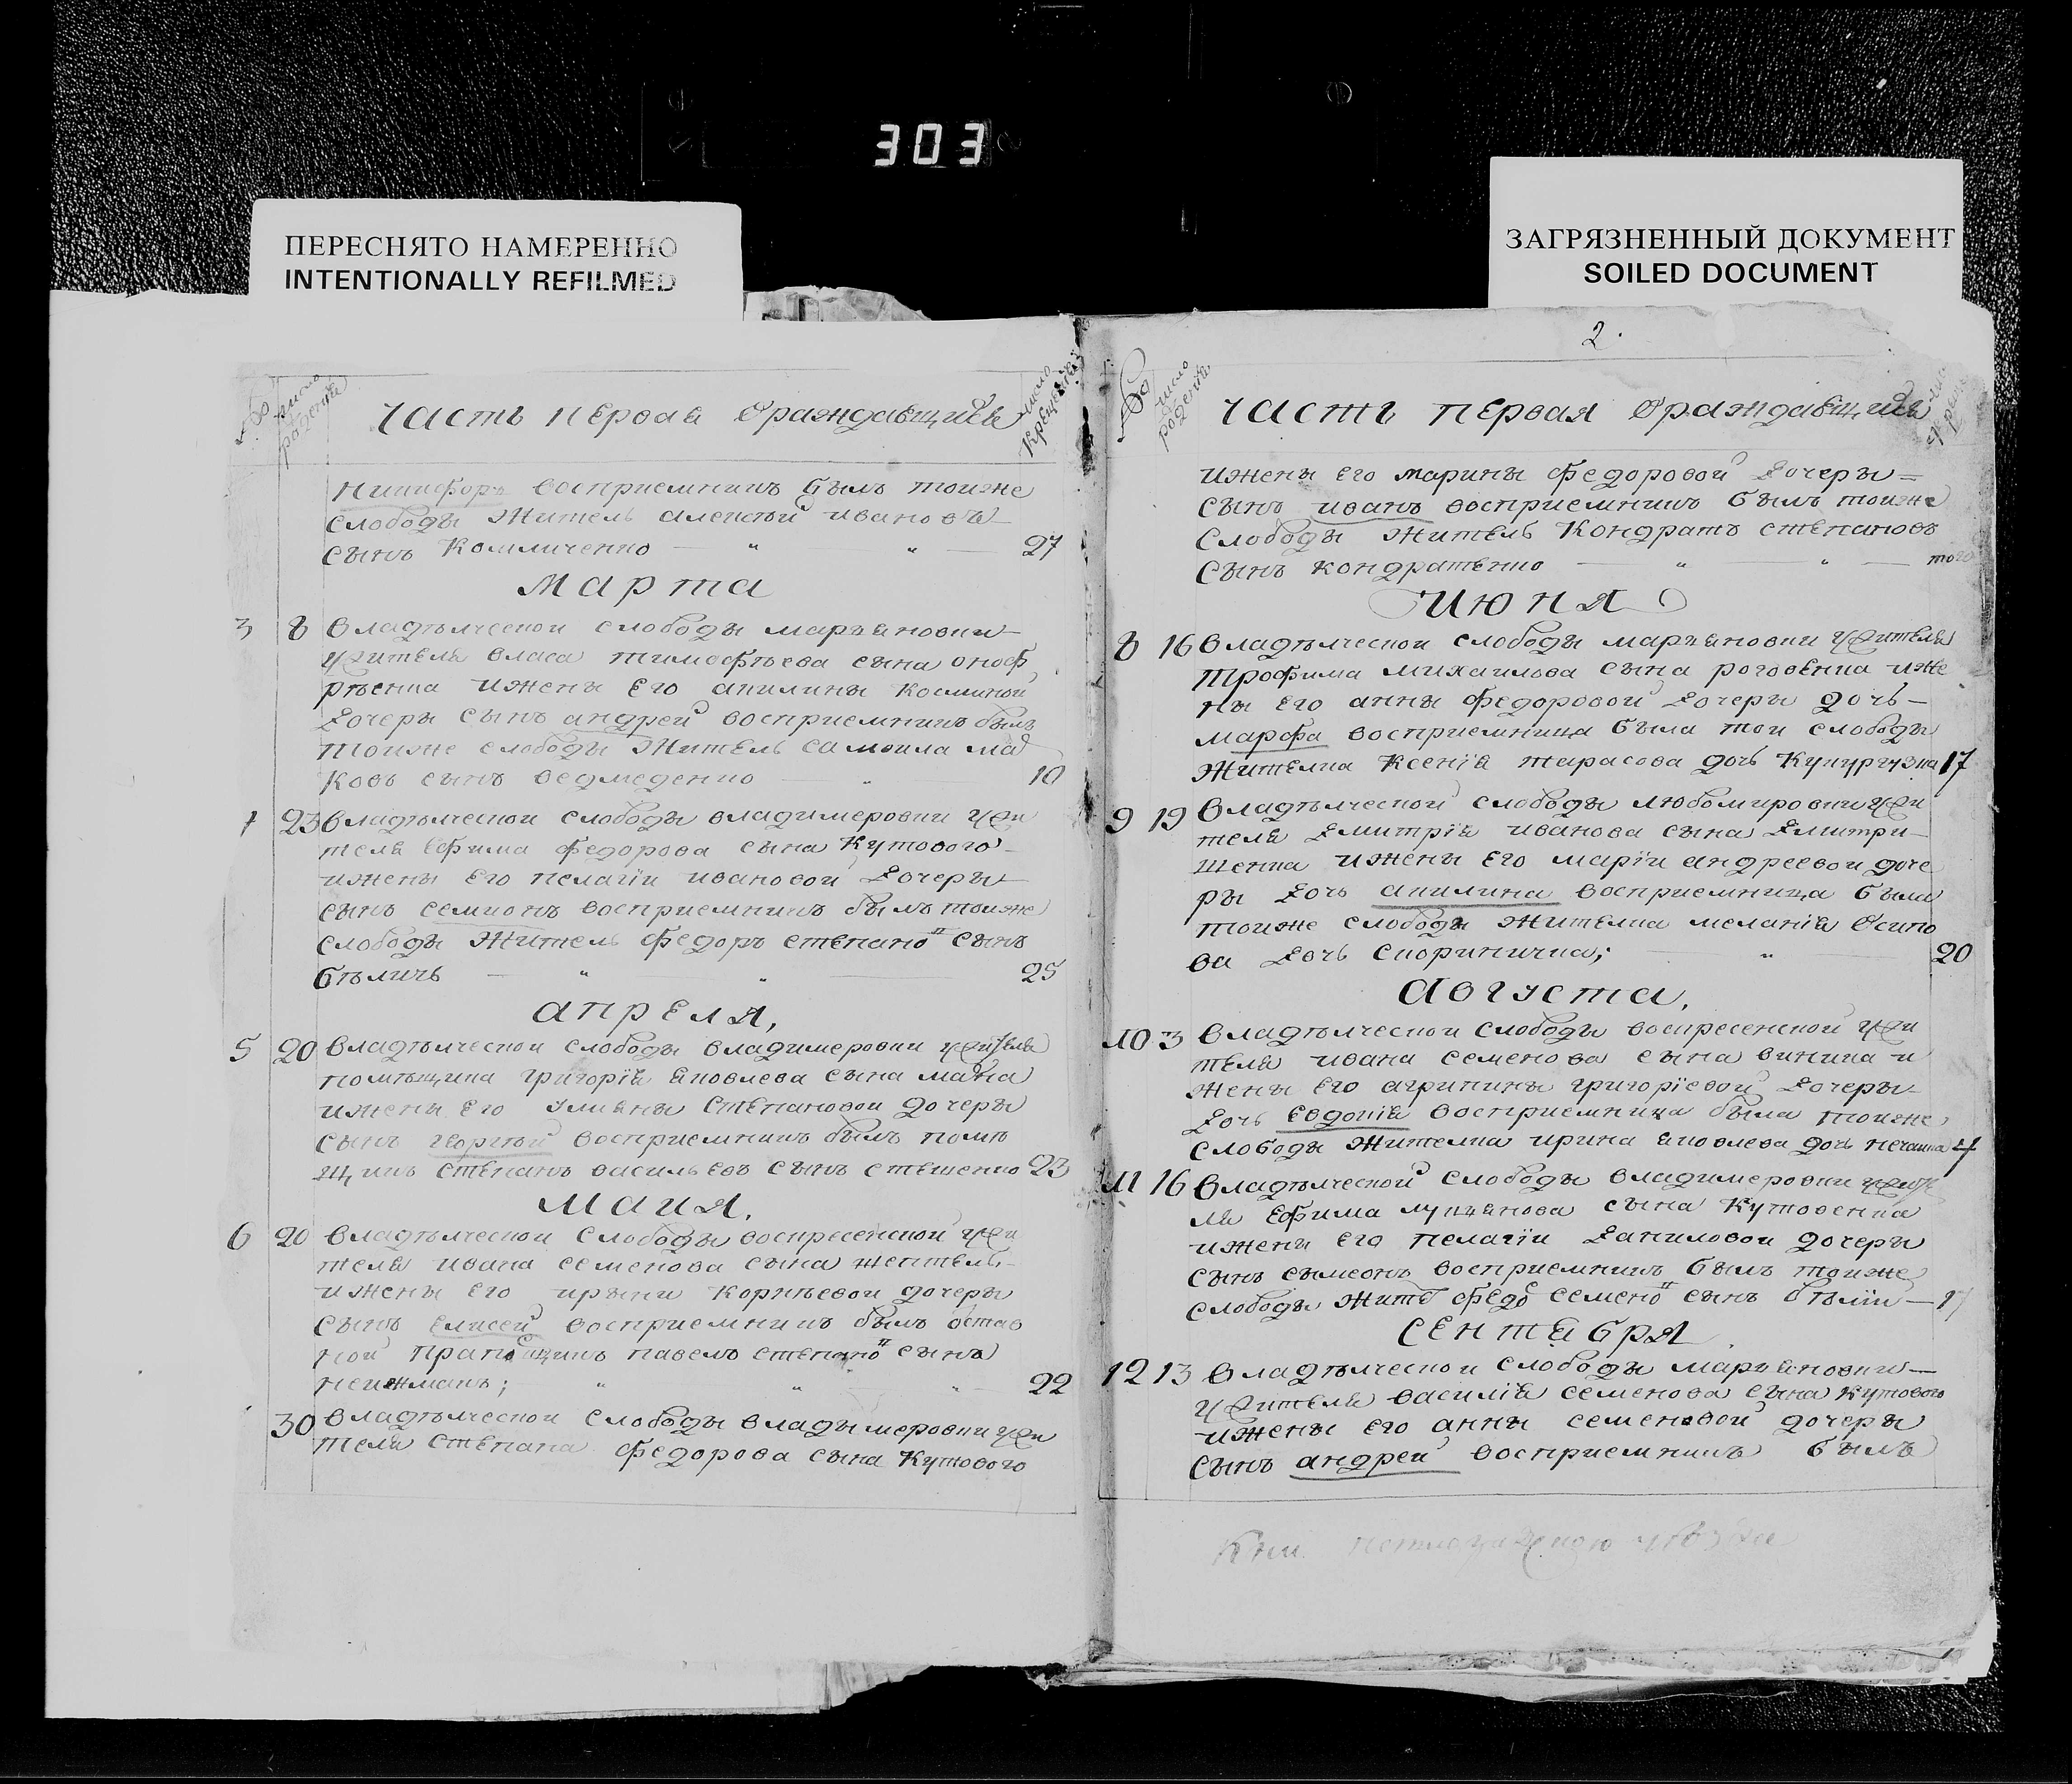 303
ПЕРЕСНЯТО НАМЕРЕННО
INTENTIONALLY REFILMED
ЗАГРЯЗНЕННЫЙ ДОКУМЕНТ
SOILED DOCUMENT
число родения
часть первая ораждавщихся
число крещения
никифоръ восприемникъ былъ тоиже
слободы житель алексѣй ивановъ
сынъ Комличенко 27
марта
3 8 владѣлческой слободы маръяновки
жителя власа тимофѣева сына оноф
рѣенка ижены его акилины косминой
дочеры сынъ андрей восприемникъ былъ
тоиже слободы житель самоила ма
ковъ сынъ ведмеденко 10
23 владѣлческой слободы владимеровки жи
теля ефима федорова сына кутового
ижены его пелагіи ивановой дочеры
сынъ семионъ восприемникъ былъ тоиже
слободы житель федоръ степано сынъ
бѣличъ 25
апреля,
5 20 владѣлческой слободы владимеровки жителя
помѣщика григорія яковлева сына
ижены его улияны степановой дочеры
сынъ георгій восприемникъ былъ помѣ
щикъ степанъ васильевъ сынъ стешенко 23
маия.
6 20 владѣлческой слободы воскресенской жи
теля ивана семенова сына
ижены его ирыни корнѣевой дочеры
сынъ елисей восприемникъ былъ остав
ной павелъ степано сынъ
нейжмакъ; 22
30 владѣлческой слободы владымеровки жи
теля степана федорова сына кутового
2.
число родения
часть первая ораждавщихся
ижены его марины федоровой дочеры=
сынъ иванъ восприемникъ былъ тоиже
слободы житель кондратъ степановъ
сынъ кондратенко того
июня
8 16 владѣлческой слободы маръяновки жителя
трофима михаилова сына роговенка иже
ны его анны федоровой дочеры дочь
марфа восприемница была той слободы
жителка ксенія тарасова дочь 17
9 19 владѣлческой слободы любомировки жи
теля дмитрія иванова сына дмитри
щенка ижены его маріи андреевой доче
ры дочь акилина восприемница была
тоиже слободы жителка меланія осипо
ва дочь скорикичка; 20
августа,
10 3 владѣлческой слободы воскресенской жи
теля ивана семенова сына виника и
жены его агрипины григоріевой дочеры
дочь евдокія восприемница была тоиже
слободы жителка ирина яковлева дочь 4
11 16 владѣлческой слободы владимеровки жите
ля ефима лукиянова сына кутовенка
ижены его пелагіи даниловой дочеры
сынъ сымеонъ восприемникъ былъ тоиже
слободы жите федо семено сынъ бѣлій 17
сентября
12 13 владѣлческой слободы маръяновки
жителя василія семенова сына кутового
ижены его анны семеновой дочеры
сынъ андрей восприемникъ былъ